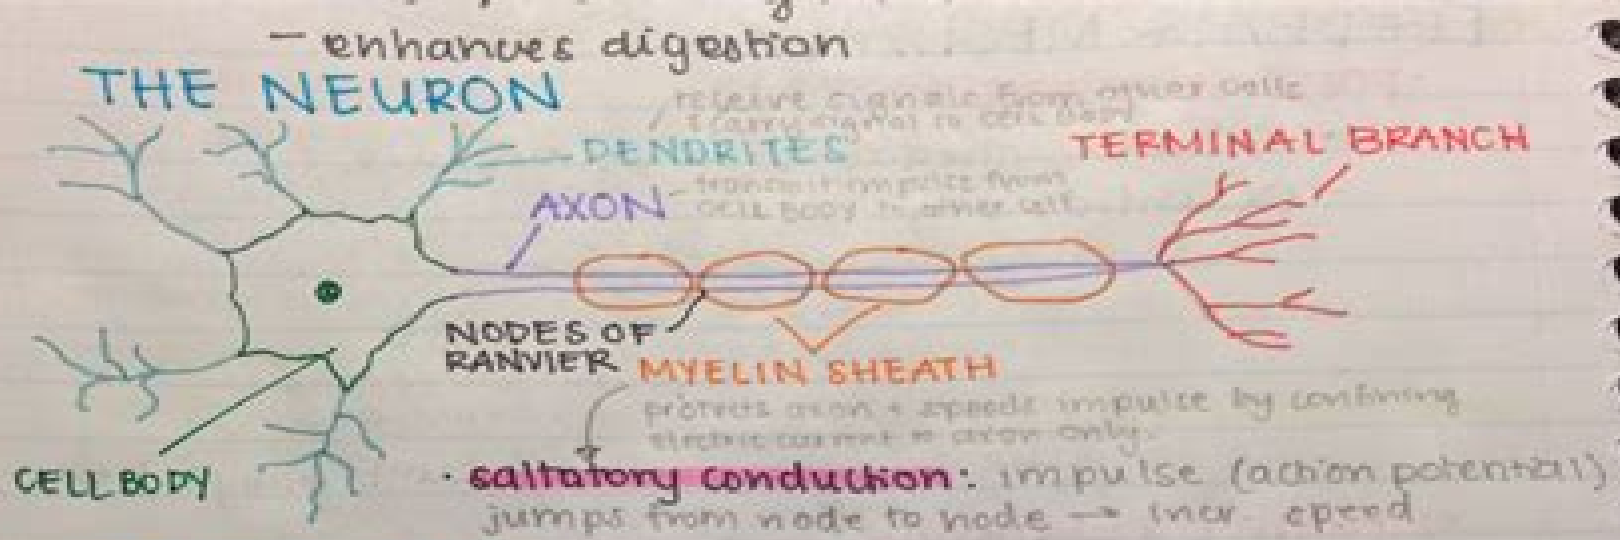 - enhances digestion
THE NEURON
receive signals from other cells
& carry signal to cell body
DENDRITES
TERMINAL BRANCH
AXON - transmit impulse from
CELL BODY to other cell
NODES OF
RANVIER
MYELIN SHEATH
protects axon + speeds impulse by confining
electric current to axon only.
CELL BODY
· saltatory conduction: impulse (action potential)
jumps from node to node → incr. speed